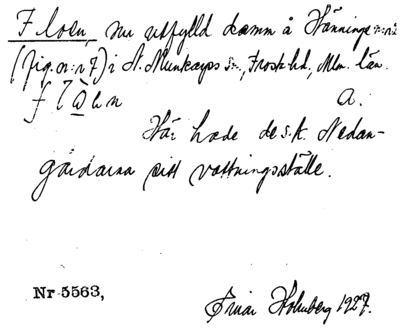 Floen, nu utfylld damm å Hänninge n:r 2
(fig. n:r 7) i St. Munkarps sn., Frosta hd, Mlm. län.
f l ω̲ ə n A.
Här hade de s.k. Nedan-
gårdarna sitt vattningsställe.
Nr 5563, Einar Holmberg 1927.